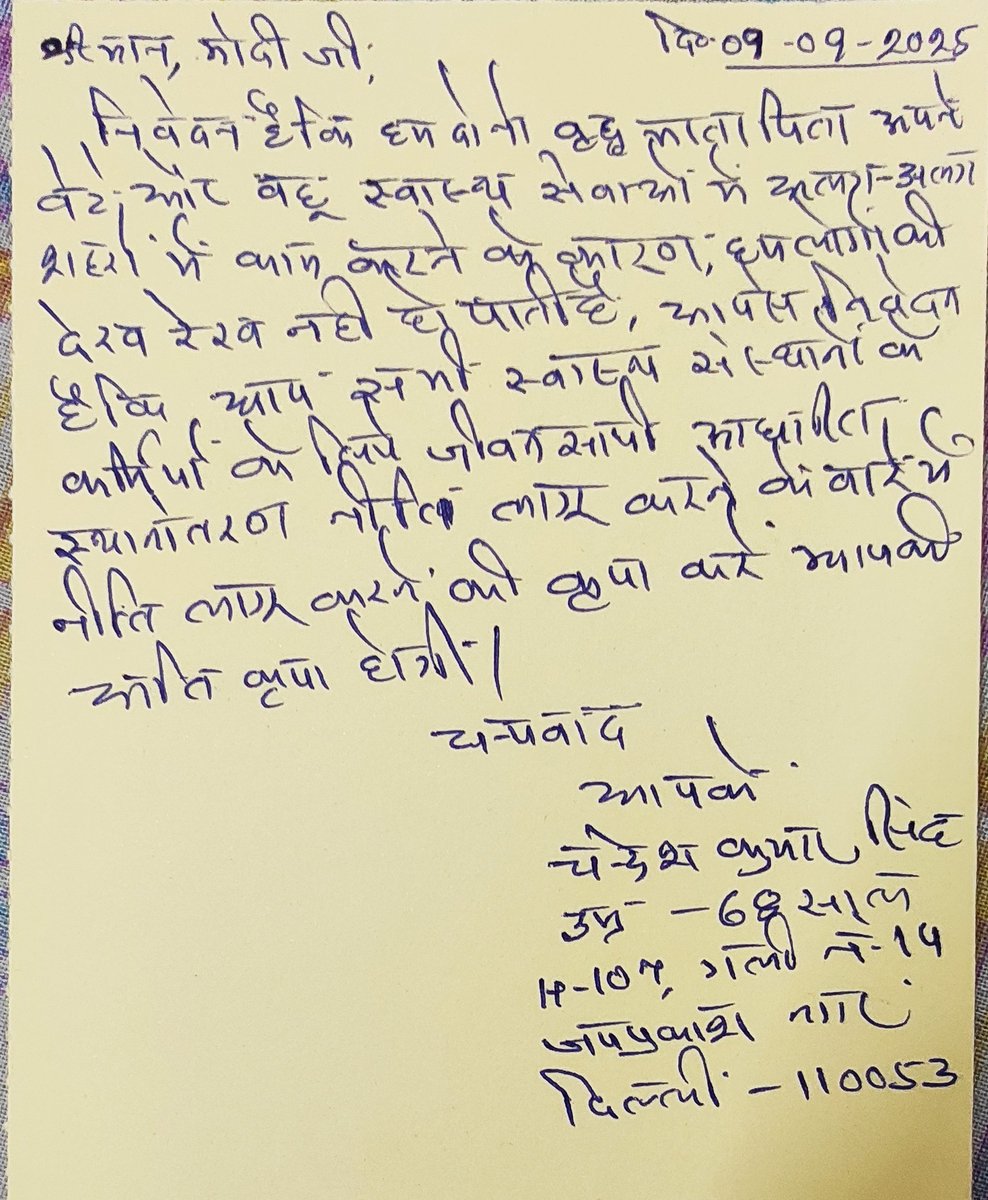 श्रीमान, मोदी जी, दि॰ 09-09-2025
निवेदन है कि हम दोनों वृद्ध माता पिता अपने
बेटे और बहू स्वास्थ्य सेवाओं में अलग-अलग
शहरों में काम करने के कारण, हमलोगों की
देख रेख नहीं हो पाती है, आपसे निवेदन
है कि आप सभी स्वास्थ्य संस्थानों के
कर्मियों के लिये जीवनसाथी आधारित
स्थानांतरण नीति लागू करने के बारे में
नीति लागू करने की कृपा करें आपकी
अति कृपा होगी।
धन्यवाद
आपके
कुमार सिंह
उम्र - 68 साल
गली नं-14
जयप्रकाश नगर
दिल्ली - 110053